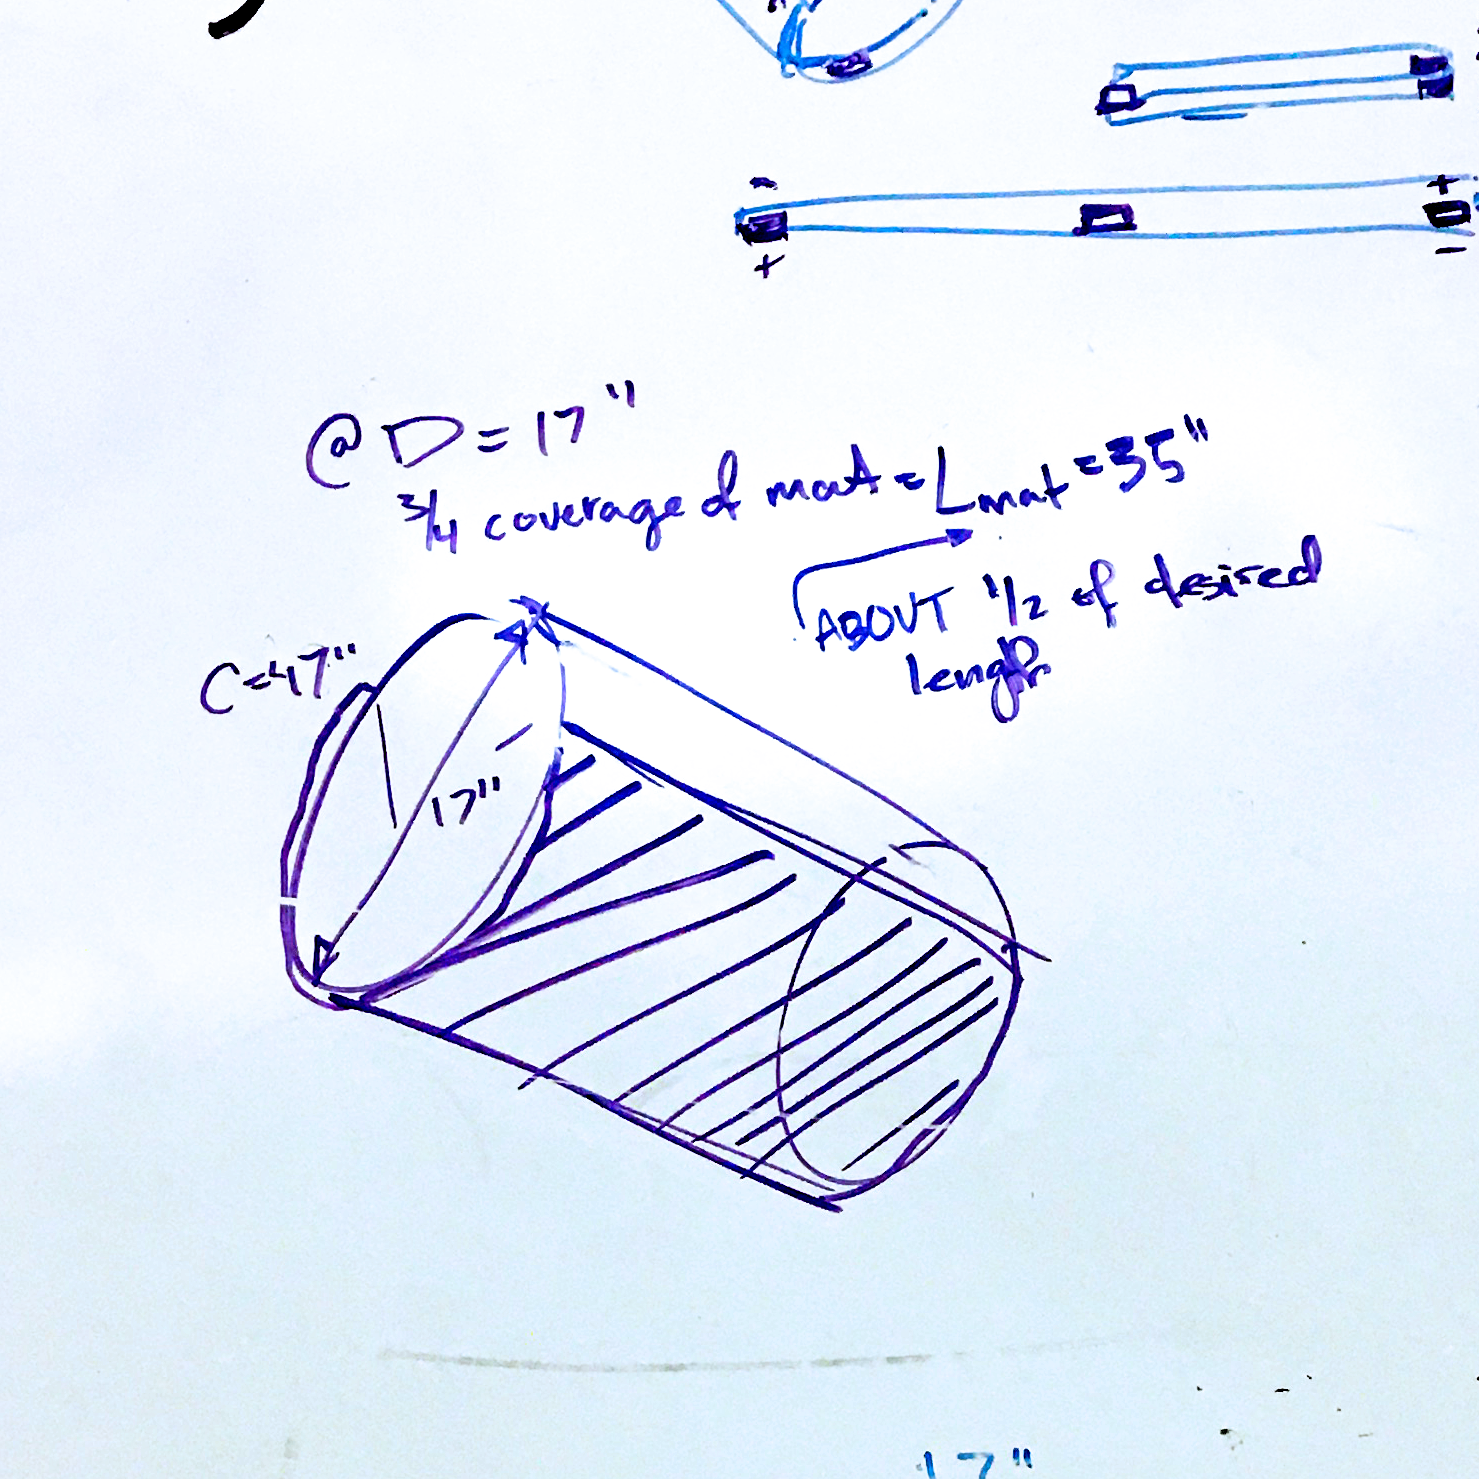 -
+
+
-
@ D = 17"
3/4 coverage of mat = Lmat = 35"
ABOUT 1/2 of desired
length
C=47"
17"
17"